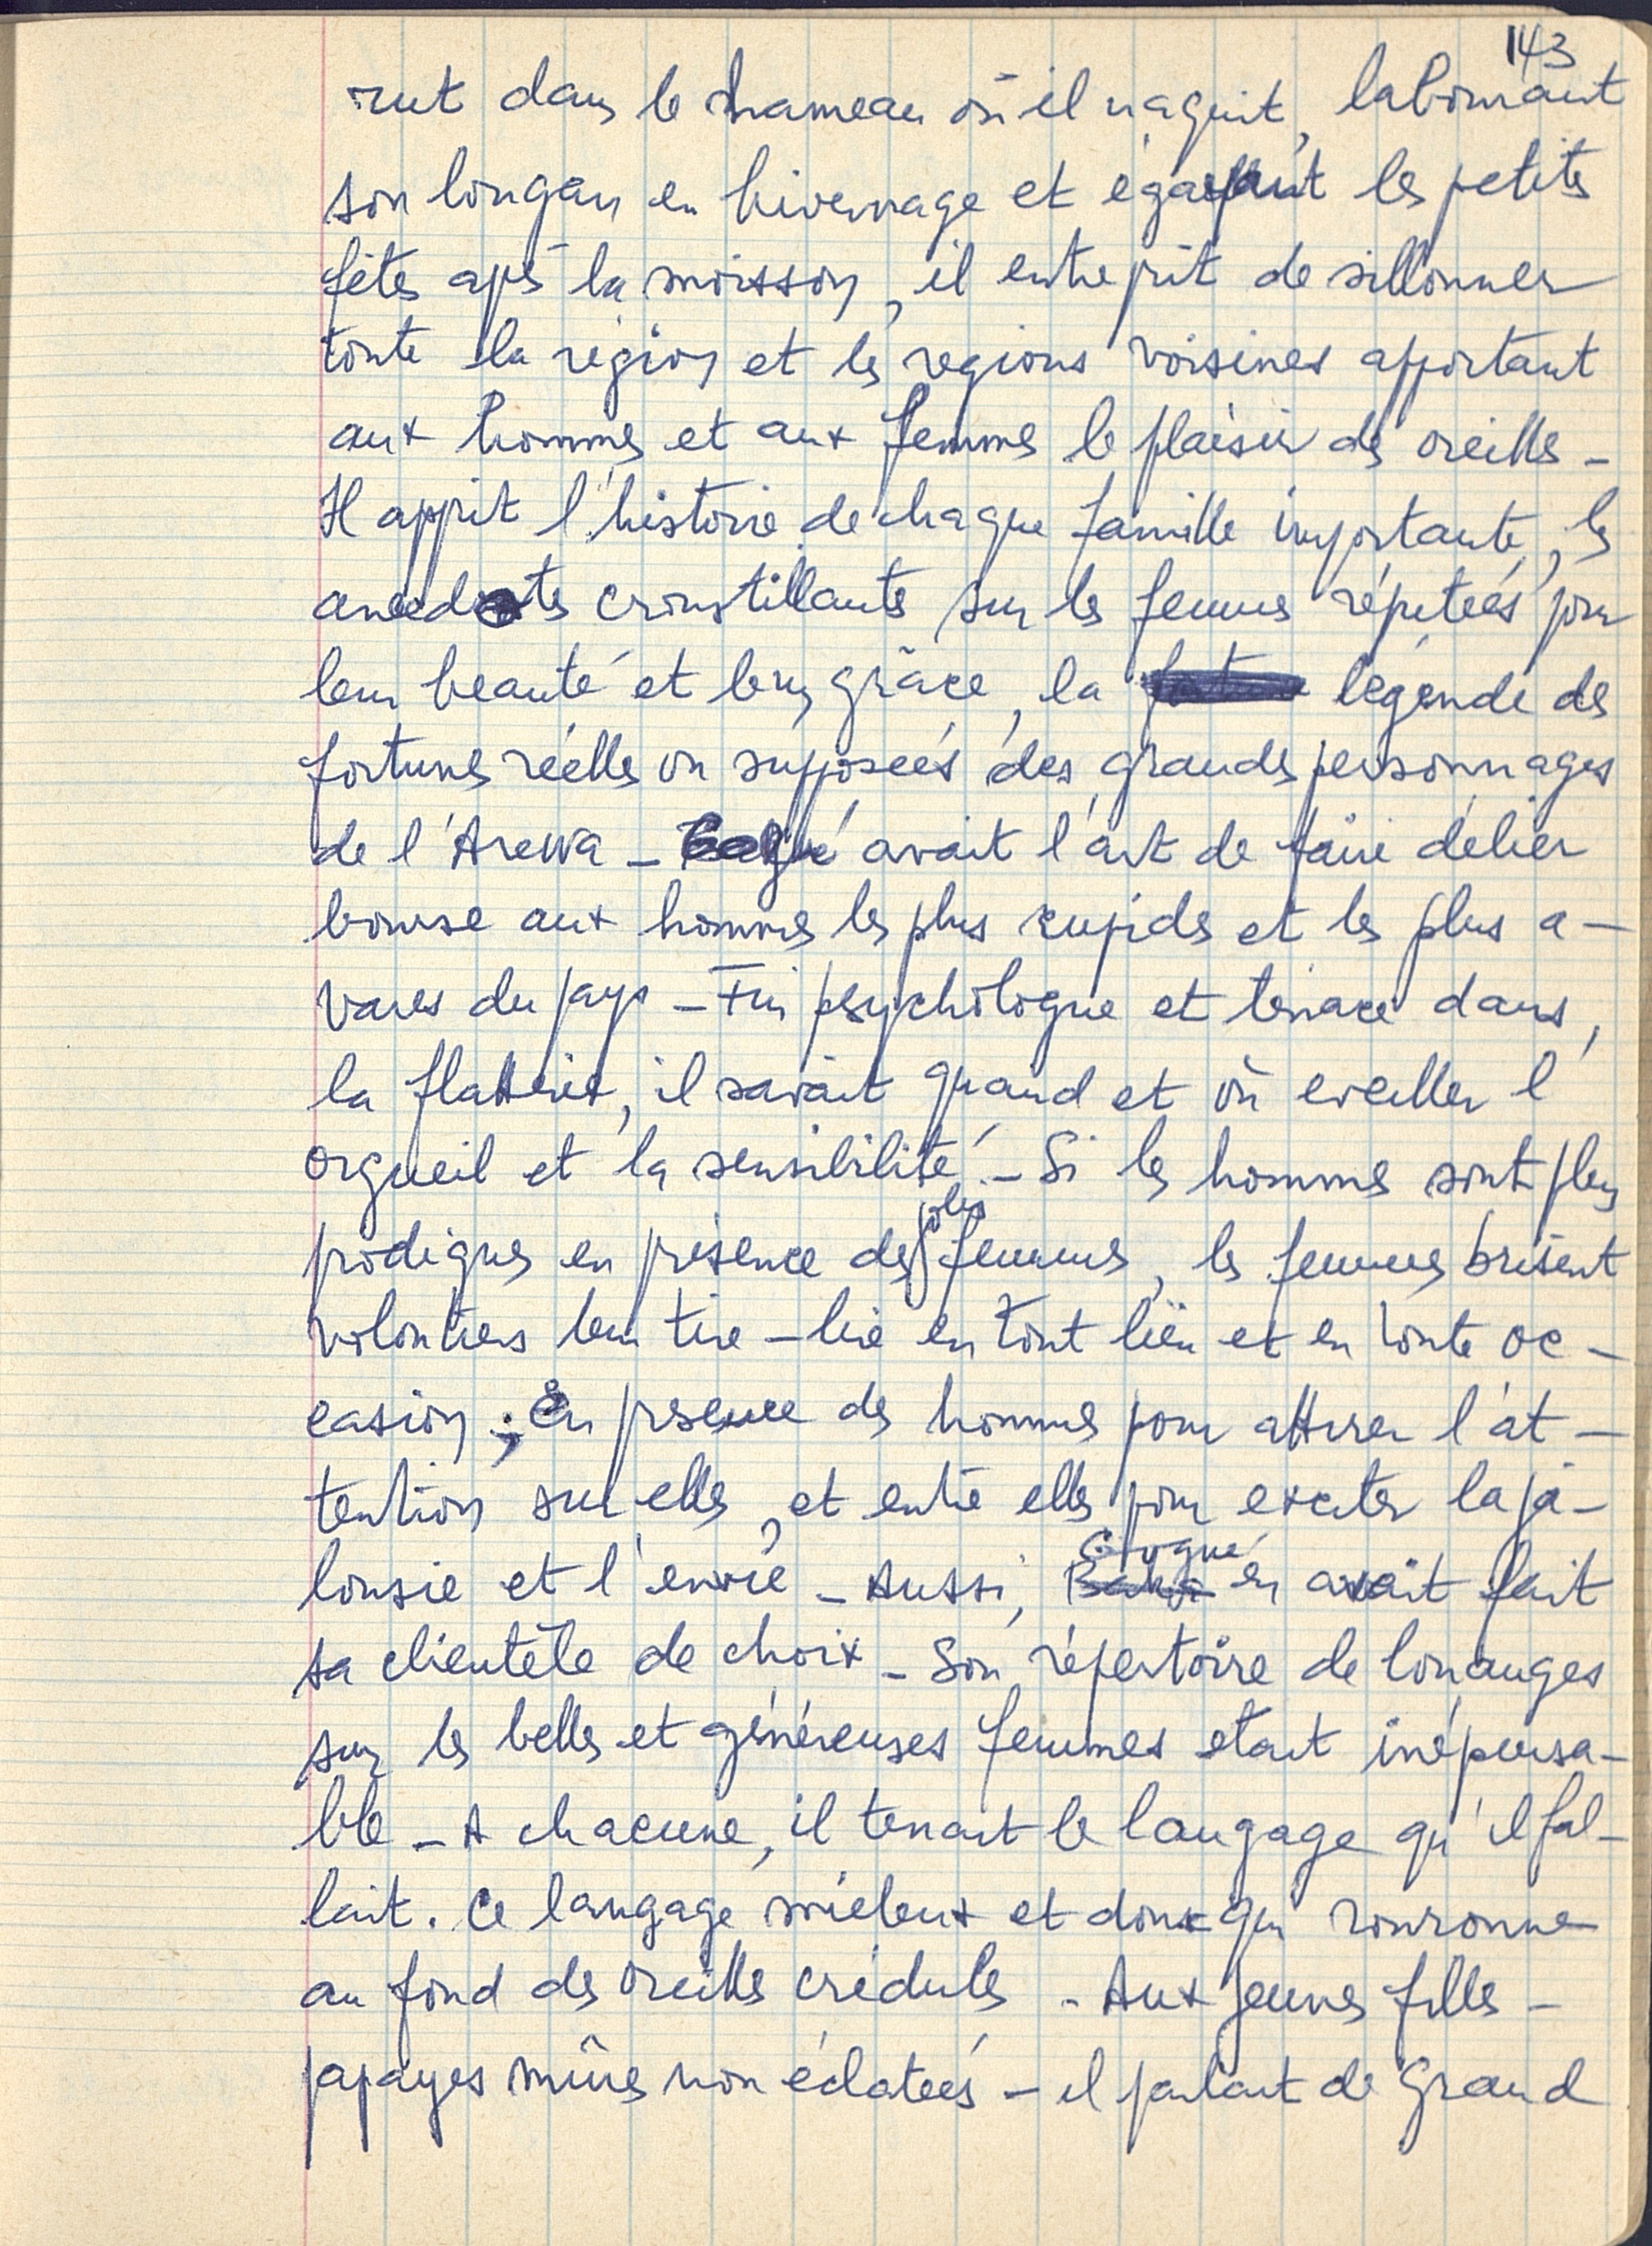 143
rut dans le hameau où il naquit, labourant
son lougan en hivernage et égayant les petites
fêtes après la moisson, il entreprit de sillonner
toute la région et les régions voisines apportant
aux hommes et aux femmes le plaisir des oreilles -
Il apprit l'histoire de chaque famille importante, les
anecdotes croustillantes sur les femmes réputées pour
leur beauté et leur grâce, la légende des
fortunes réelles ou supposées des grands personnages
de l'Arewa - avait l'art de faire délier
bourse aux hommes les plus cupides et les plus a-
vares du pays - Fin psychologue et tenace dans
la flatterie, il savait quand et où eveiller l'
orgueil et la sensibilité - Si les hommes sont plus
prodigues en présence des jolies femmes, les femmes brisent
volontiers leur tire-lire en tout lieu et en toute oc-
casion ; En présence des hommes pour attirer l'at-
tention sur elles, et entre elles pour exciter la ja-
lousie et l'envie - Aussi, en avait fait
sa clientèle de choix - Son répertoire de louanges
sur les belles et généreuses femmes etait inépuisa-
ble - A chacune, il tenait le langage qu'il fal-
lait. Ce langage mieleux et doux qui ronronne
au fond des oreilles crédules - Aux jeunes filles -
papayes mûres non éclatées - il parlait de Grand